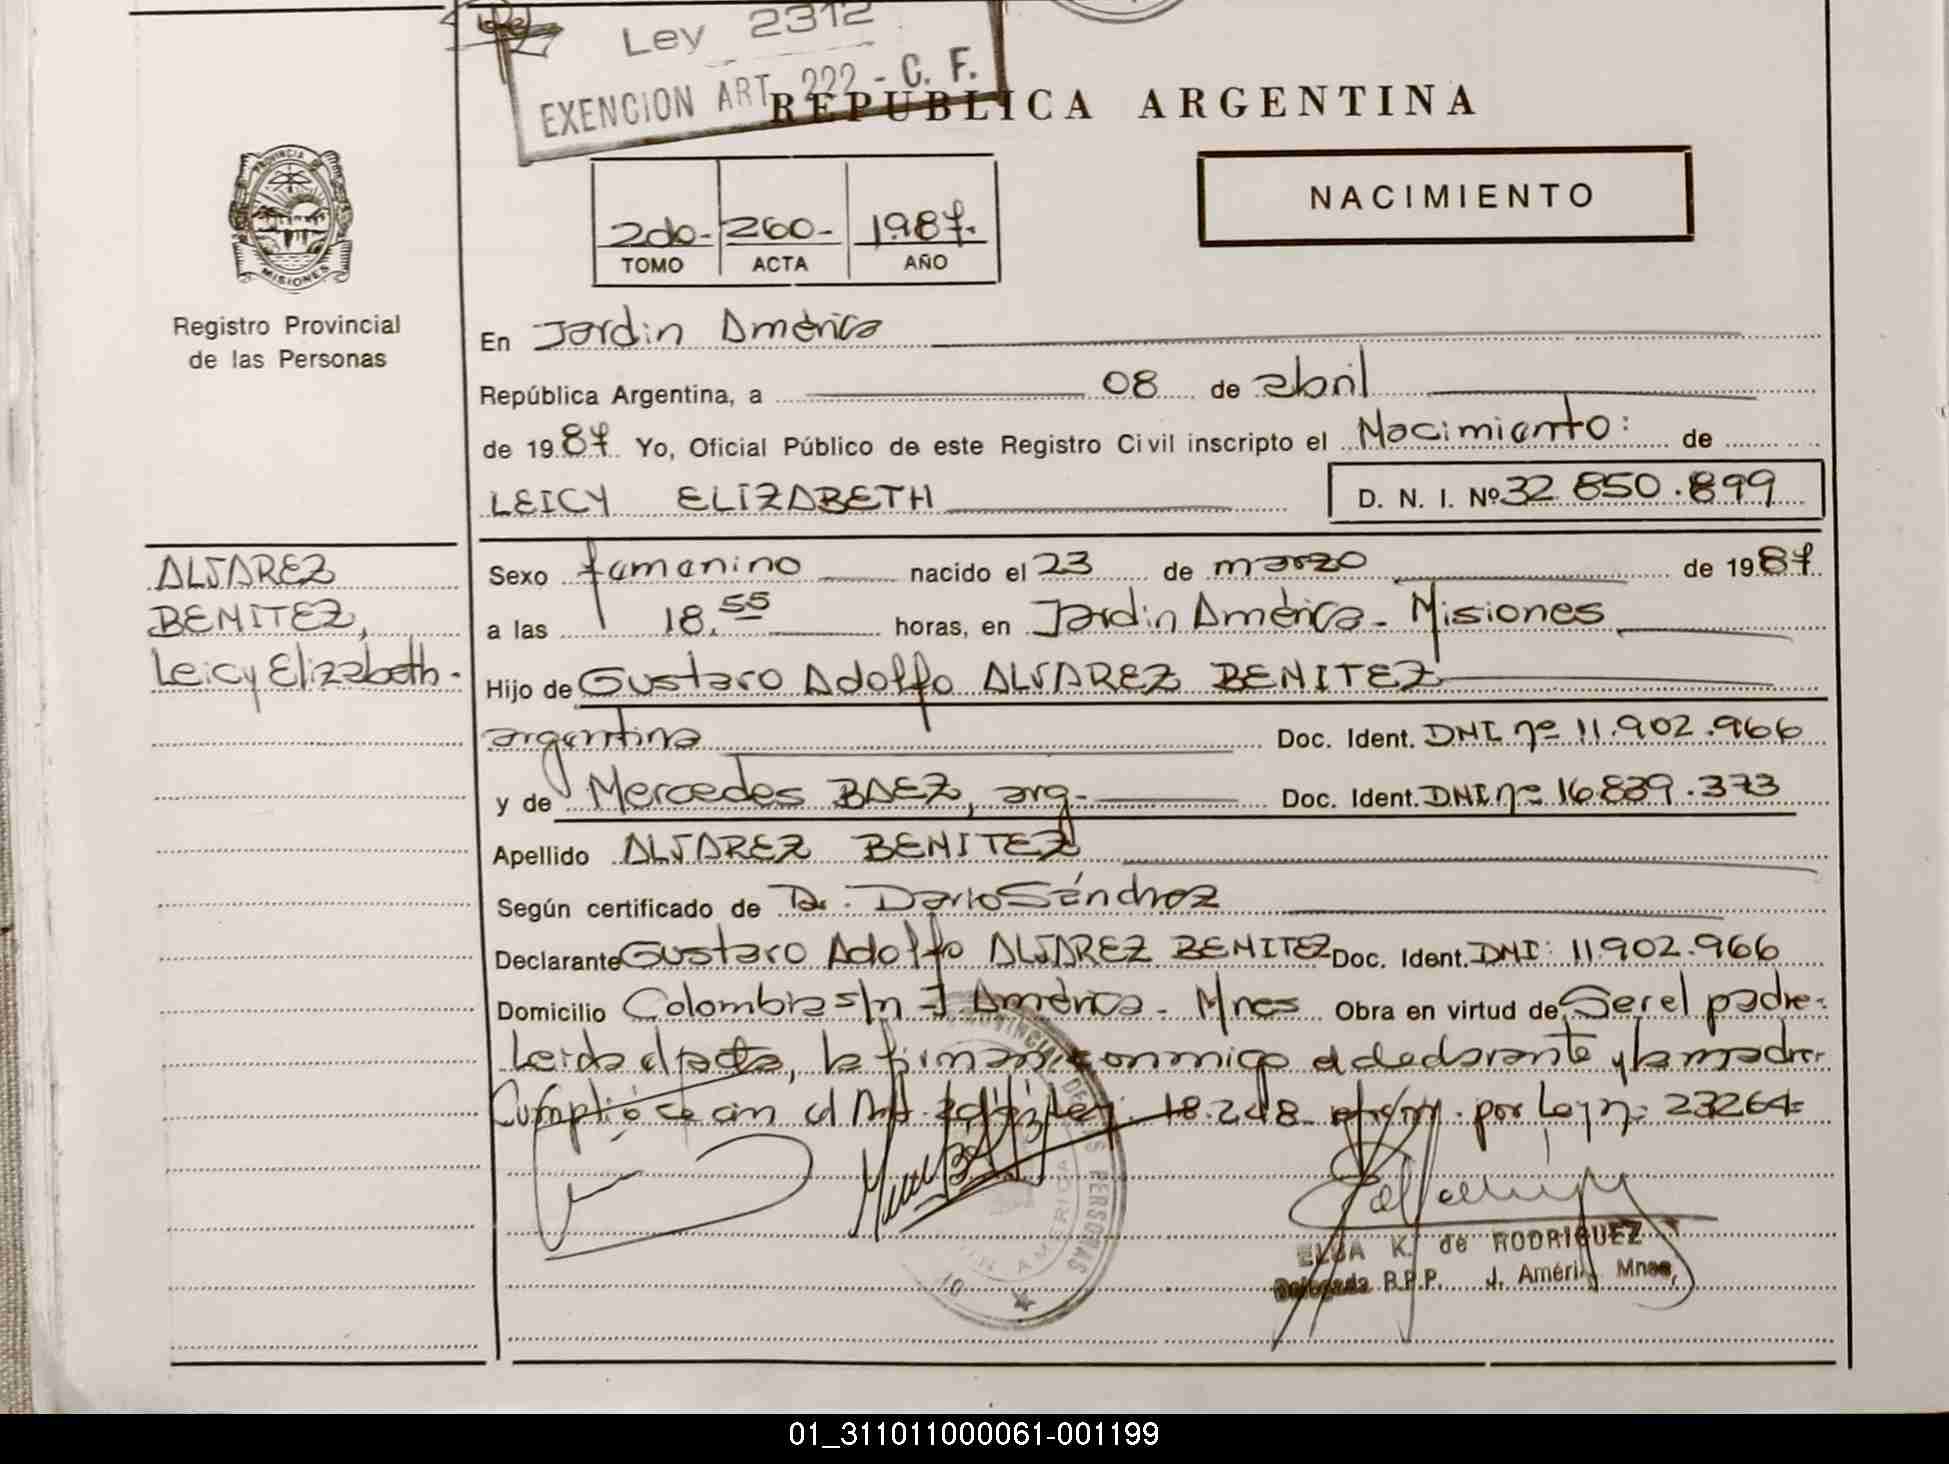 Ley 2312
EXENCION ART. 222 - C. F.
REPUBLICA ARGENTINA
PROVINCIA DE
MISIONES
NACIMIENTO
2do- 260- 1987.
TOMO ACTA AÑO
Registro Provincial
de las Personas
En Jardin América
República Argentina, a 08 de abril
de 1987 Yo, Oficial Público de este Registro Civil inscripto el Nacimiento: de
LEICY ELIZABETH D. N. I. Nº 32.850.899
ALVAREZ
BENITEZ,
Leicy Elizabeth.
Sexo femenino nacido el 23 de marzo de 1987
a las 18.55 horas, en Jardin América - Misiones
Hijo de Gustavo Adolfo ALVAREZ BENITEZ
argentina Doc. Ident. DNI nº 11.902.966
y de Mercedes BAEZ, arg. Doc. Ident. DNI nº 16.839.373
Apellido ALVAREZ BENITEZ
Según certificado de Dr. Dario Sánchez
Declarante Gustavo Adolfo ALVAREZ BENITEZ Doc. Ident. DNI: 11.902.966
Domicilio Colombia s/n J América - Mnes Obra en virtud de Ser el padre.
Leida el acta, la firman conmigo el declarante y la madre.
Cumplióse con el Ley 18.248 por Ley nº 23264=
ELSA K. de RODRIGUEZ
Delegada R.P.P. J. América Mnes,
PROVINCIAL DE LAS PERSONAS
01_311011000061-001199